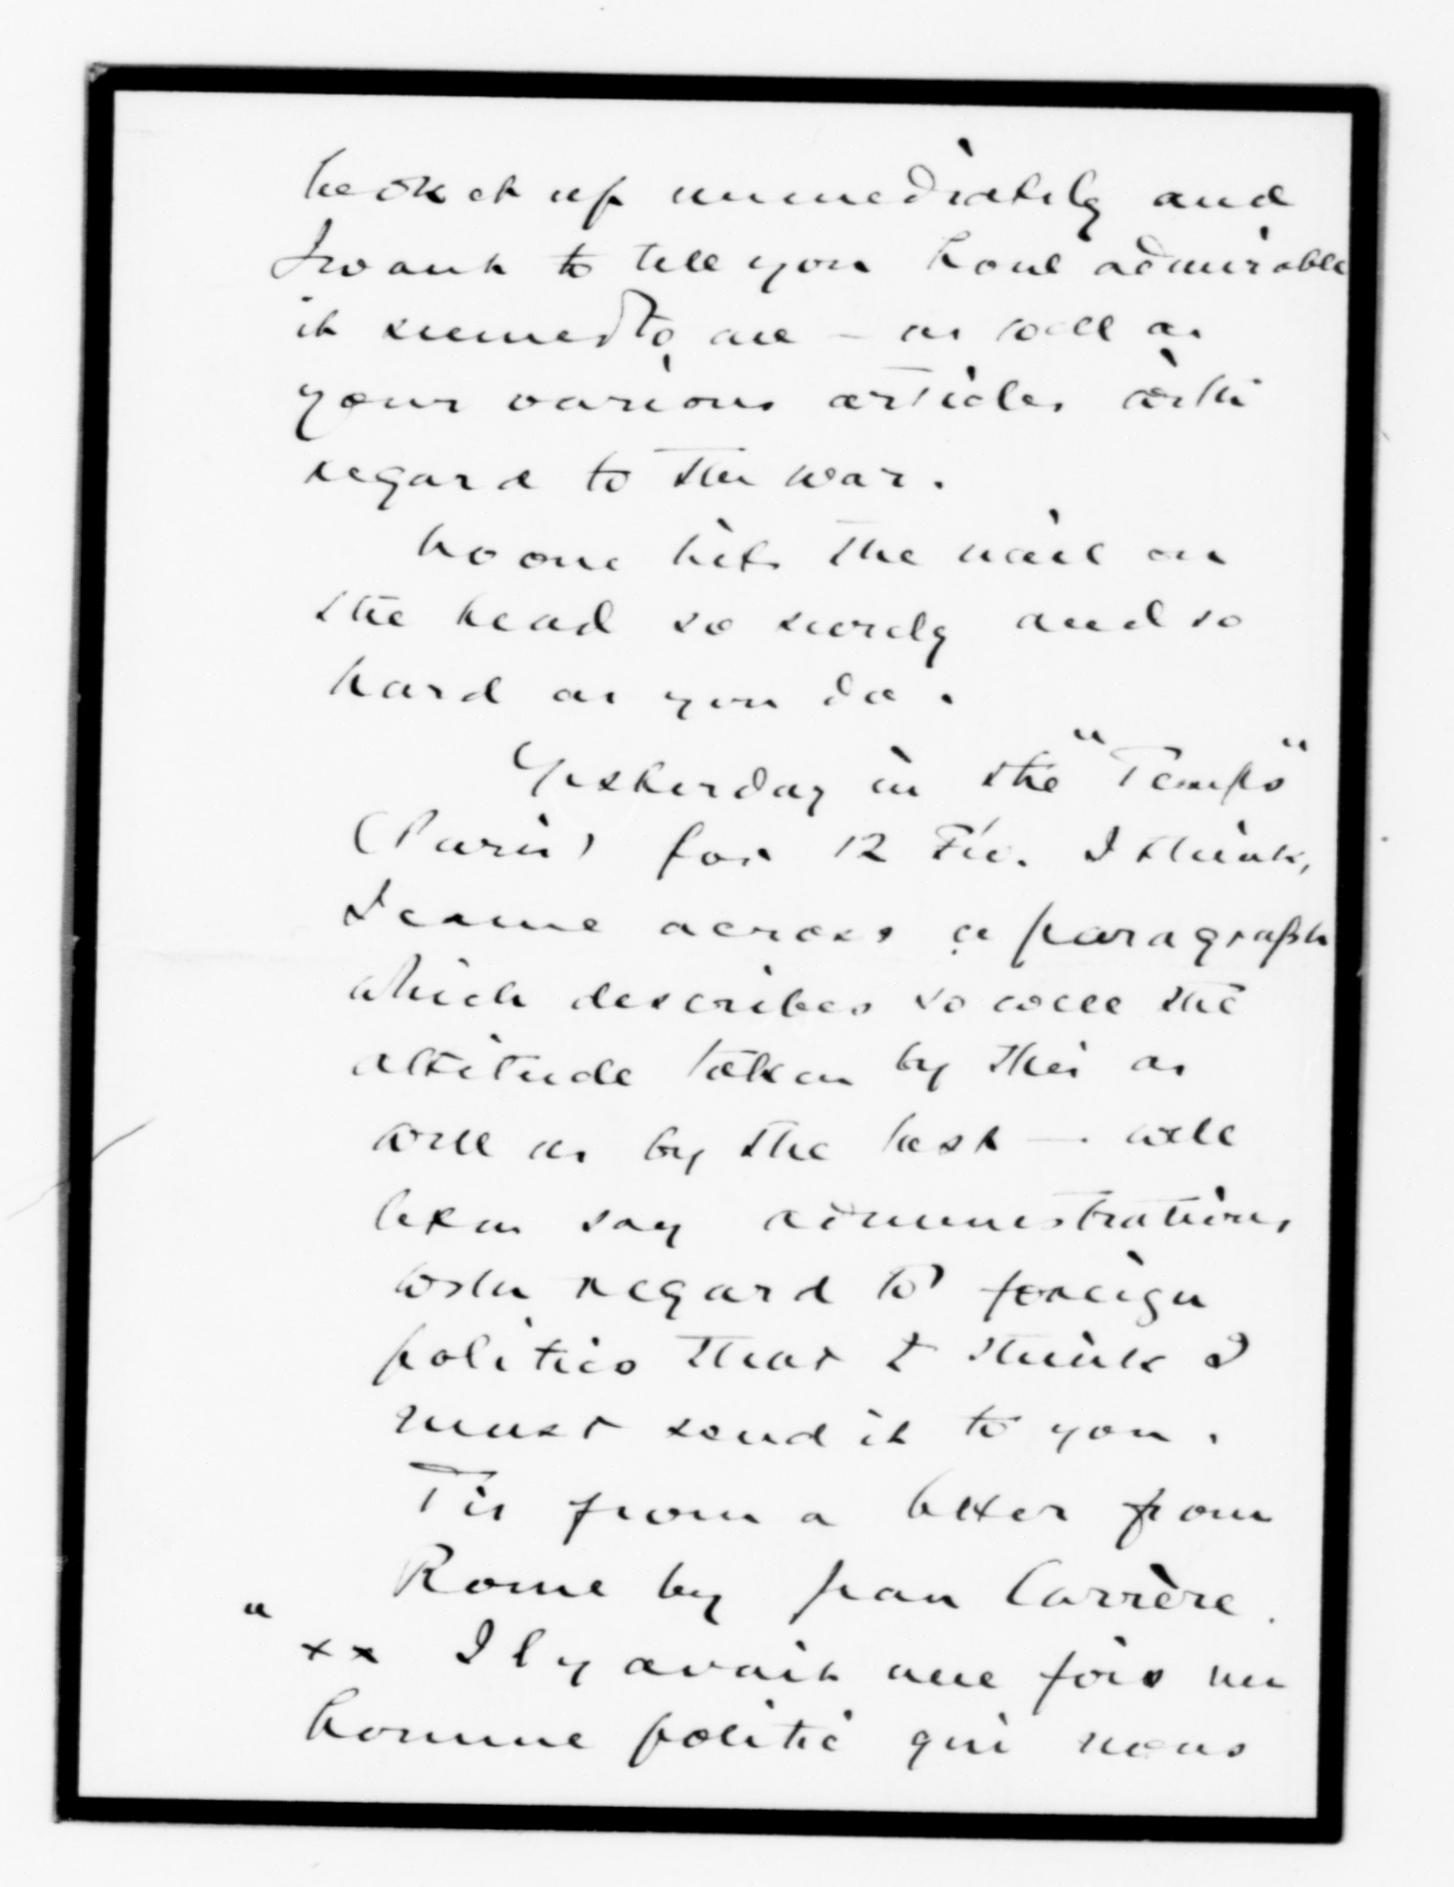 took it up immediately and
I want to tell you how admirable
it seemed to me – as well as
your various articles with
regard to the war.
No one hits the nail on
the head so surely and so
hard as you do.
Yesterday in the "Temps"
(Paris) for 12 Fév. I think,
I came across a paragraph
which describes so well the
attitude taken by this as
well as by the last — well
lets say administrations
with regard to foreign
politics that I think I
must send it to you.
Tis from a letter from
Rome by Jean Carrère.
" xx Il y avait une fois un
homme politic qui nous